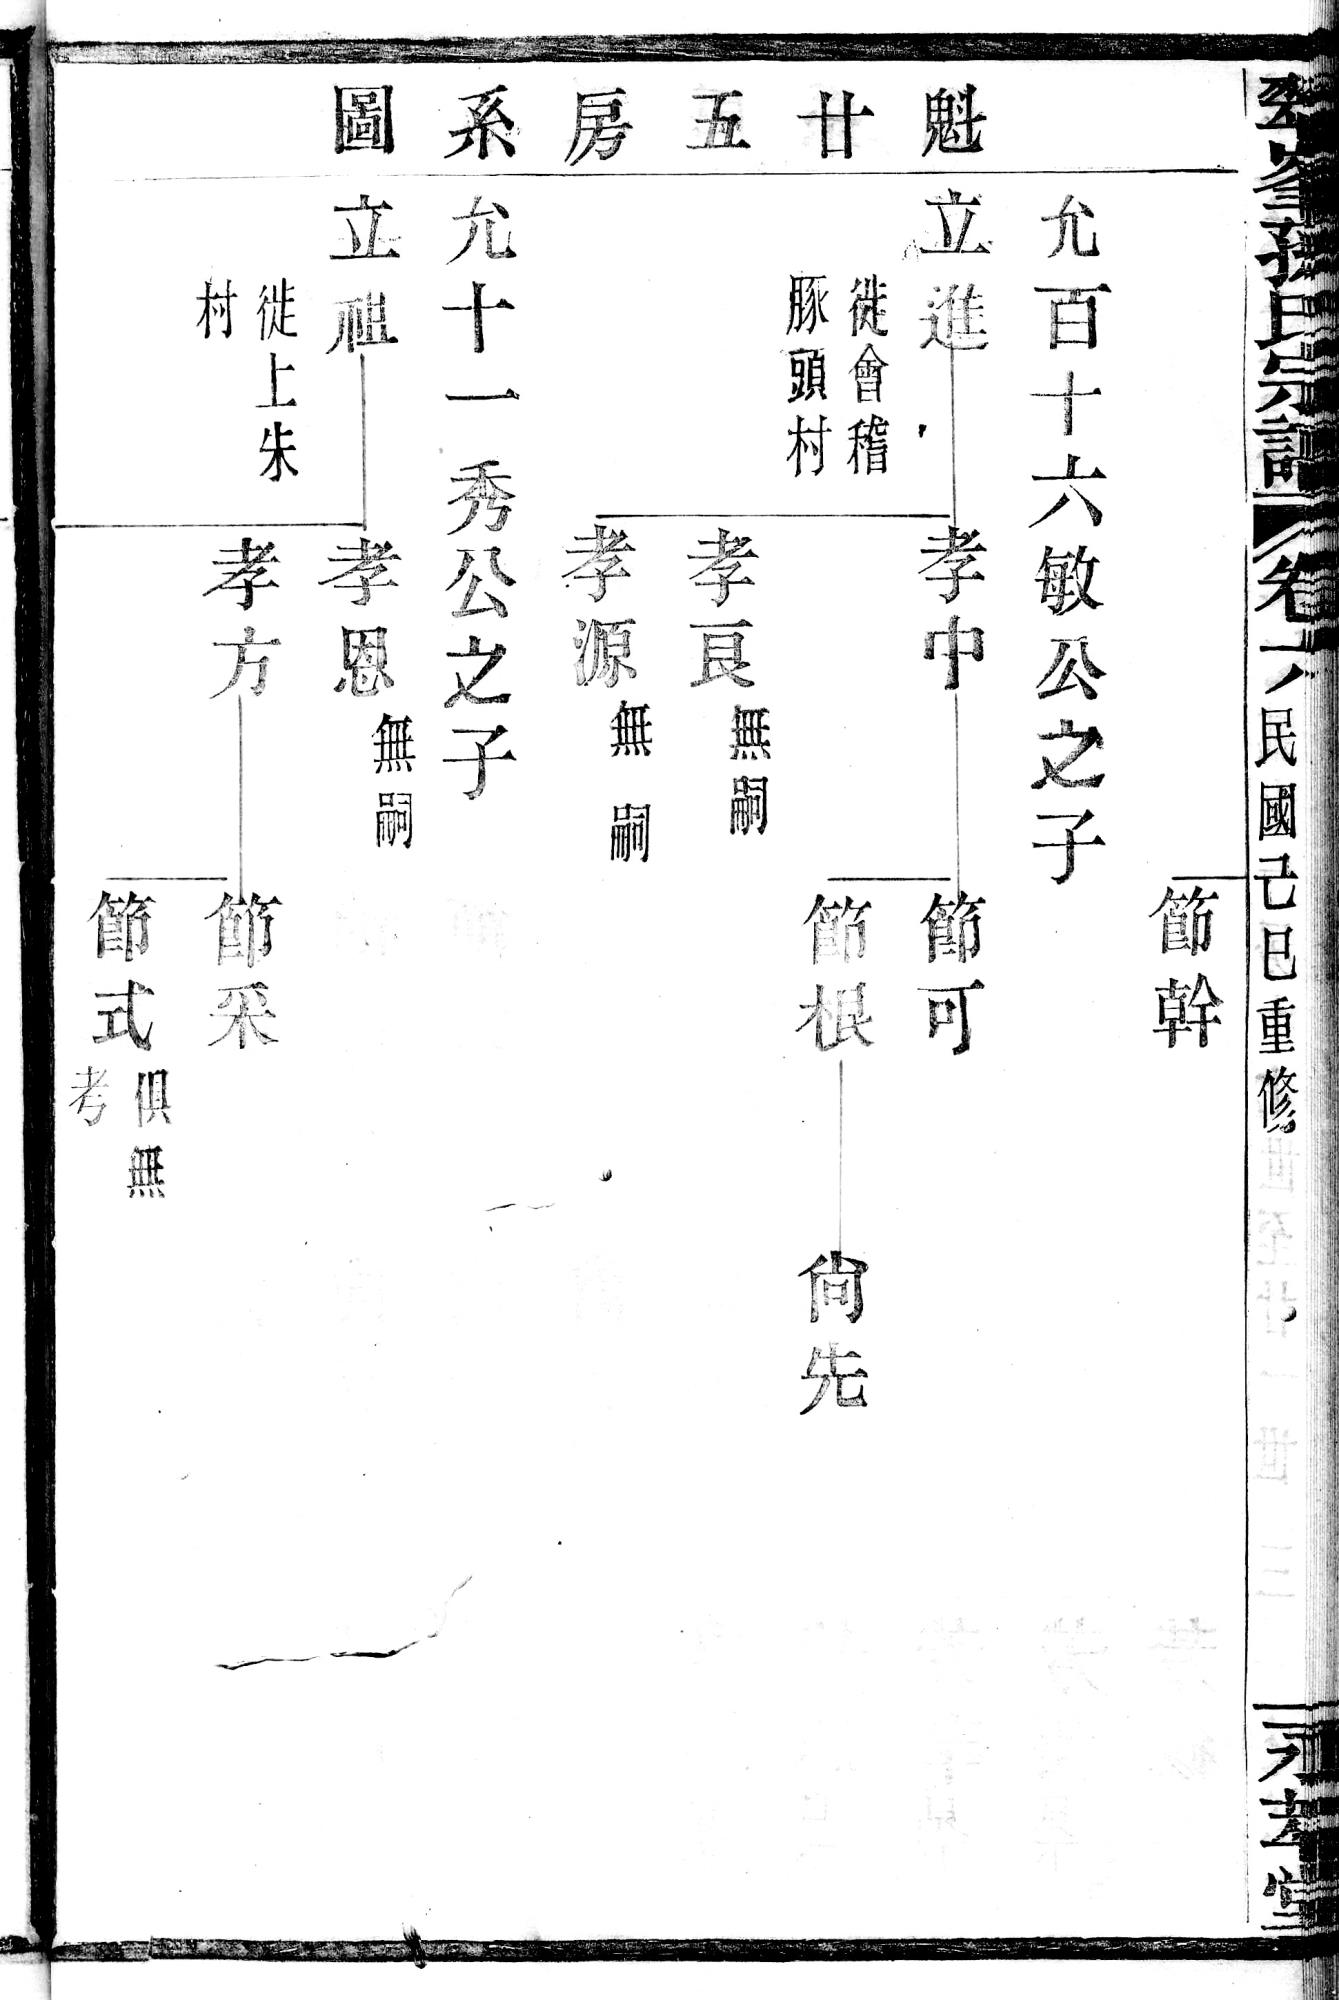 孫氏宗譜
卷六
民國己巳重修
堂
魁廿五房系圖
節幹
允百十六敏公之子
立進
徙會稽
豚頭村
孝中
節可
節根
尙先
孝良
無嗣
孝源
無嗣
允十一秀公之子
立祖
徙上朱
村
孝恩
無嗣
孝方
節采
節式
俱無
考